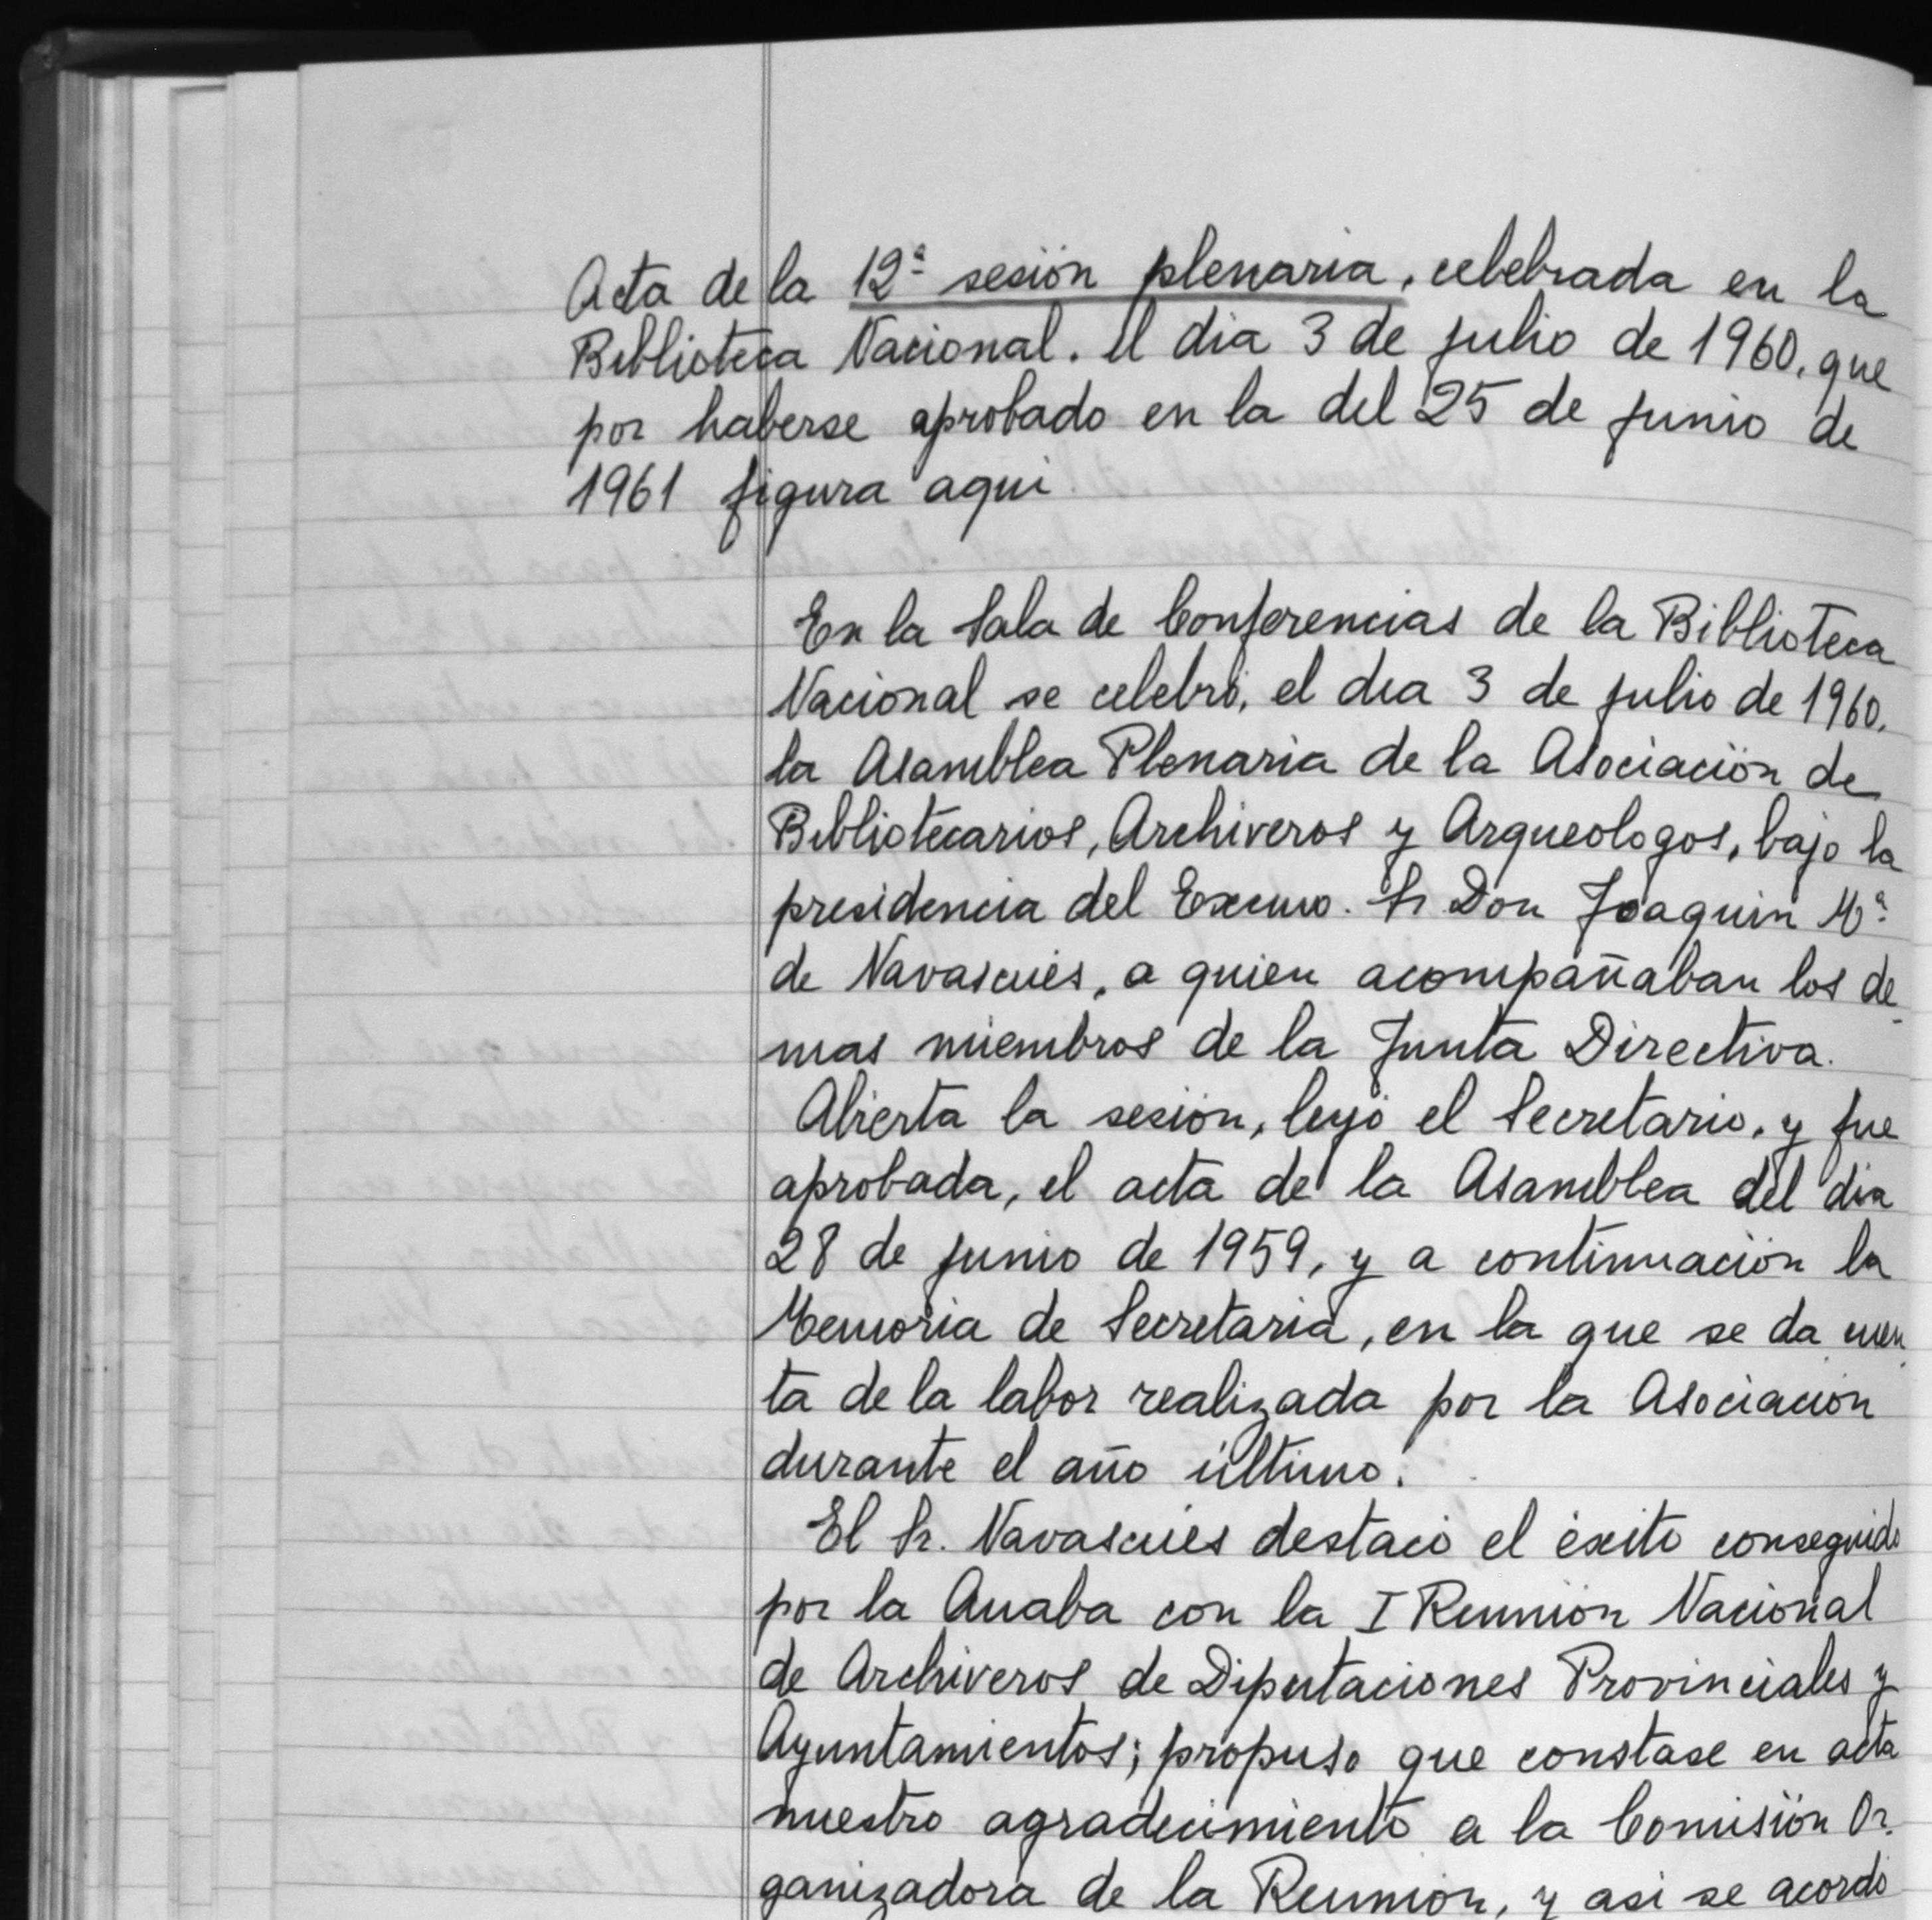 Acta de la 12ª sesión plenaria, celebrada en la
Biblioteca Nacional. el dia 3 de julio de 1960, que
por haberse aprobado en la del 25 de junio de
1961 figura aqui
En la Sala de Conferencias de la Biblioteca
Nacional se celebró, el dia 3 de julio de 1960,
la Asamblea Plenaria de la Asociación de
Bibliotecarios, Archiveros y Arqueologos, bajo la
presidencia del Excmo. Sr Don Joaquin Mª
de Navascués, a quien acompañaban los de-
mas miembros de la Junta Directiva.
Abierta la sesión, leyó el Secretario, y fue
aprobada, el acta de la Asamblea del dia
28 de junio de 1959, y a continuación la
Memoria de Secretaria, en la que se da cuen-
ta de la labor realizada por la Asociación
durante el año último.
El Sr. Navascués destacó el éxito conseguido
por la Anaba con la I Reunión Nacional
de Archiveros de Diputaciones Provinciales y
Ayuntamientos; propuso que constase en acta
nuestro agradecimiento a la Comisión Or-
ganizadora de la Reunión, y asi se acordó